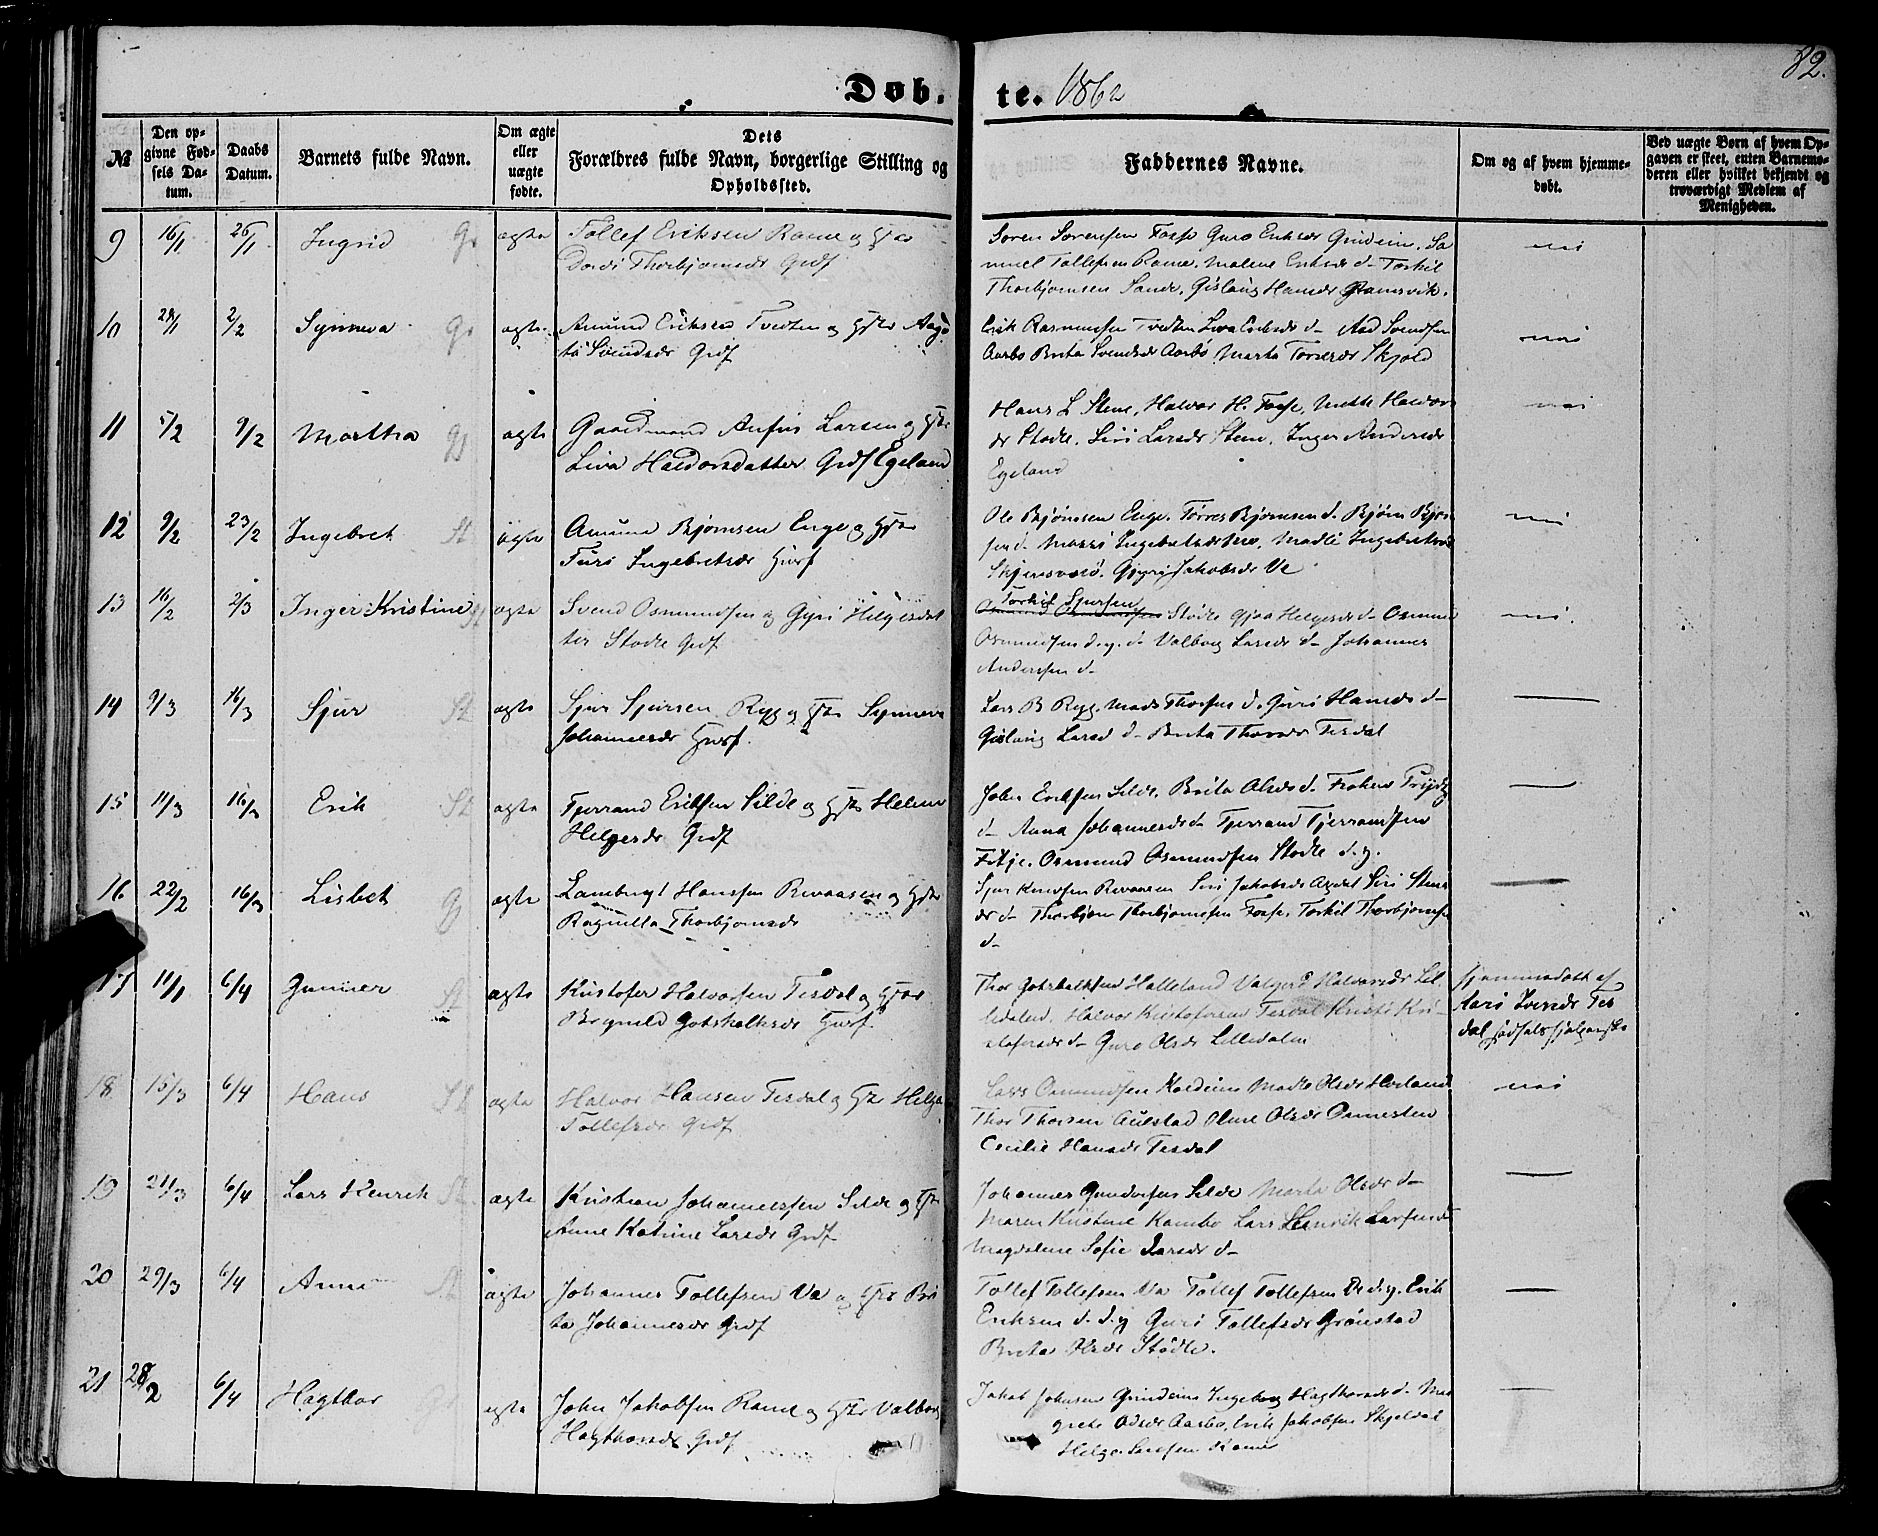 82.
Døb.te. 1862
№
Den op-
givne Fød-
sels Da-
tum.
Daabs
Datum.
Barnets fulde Navn.
Om ægte
eller
uægte
fødte.
Dets
Forældres fulde Navn, borgerlige Stilling og
Opholdssted.
Faddernes Navne.
Om og af hvem hjemme-
døbt.
Ved uægte Børn af hvem Op-
gaven er skeet, enten Barnemo-
deren eller hvilket bekjendt og
troværdigt Medlem af
Menigheden.
9 16/1 26/1 Ingrid G. ægte Tollef Eriksen Rame og Hstr
Thorbjørnsdr Grdf
Søren Sørensen Fosse Guro Eriksdr Grindeim. Sa
muel Tollefsen Rame. Malene Eriksdr d- Torkil
Thorbjørnsen Sande. Gislaug Hansdr Ramsvik.
nei
10 28/1 2/2 Synneva G. ægte Amund Eriksen Tvedten og Hstr Aago
ta Svendsdr Grdf
Erik Rasmussen Tvedten Liva Eriksdr d- Aad Svendsen
Aarbø Brita Svendsdr Aarbø Marta Skjold
nei
11 5/2 9/2 Martha G ægte Gaardmand Anfin Larsen og Hstr
Liva Haldorsdatter Grdf Egeland
Hans L Stene, Halvor H. Fosse, Mette Haldors
dr Stødle. Siri Larsdr Stene. Inger Andersdr
Egeland
nei
12 9/2 23/2 Ingebret St ægte Amund Bjørnsen Enge og Hstr
Turi Ingebretsdr Husf
Ole Bjørnsen Enge. Tørres Bjørnsen d. Bjørn Bjørn
sen d- Ingebretsdr Madli Ingebretsdr
Jakobsdr Ve
nei
13 16/2 2/3 Inger Kristine G ægte Svend Osmundsen og Gyri Helgesdat
ter Stødle Grdf
Torkil Sjursen
Stødle Gjøa Helgesdr d- Osmund
Osmundsen d. y. d- Valborg Larsdr d- Johannes
Andersen d-
nei.
14 9/3 16/3 Sjur St ægte Sjur Sjursen Ryg og Hstr Synneva
Johannesdr Husf.
Lars B Ryg Mads Thorsen d. Guri Hansdr d-
Gislaug Larsd d- Brita Thorsdr Tesdal
15 11/3 16/3 Erik St ægte Tjerrand Eriksen Silde og Hstr Helene
Helgesdr Grdf
John Eriksen Silde. Brita Olsdr d. Frøken
d- Anna Johannesdr d- Tjerrand Tjerrandsen
Fitje. Osmund Osmundsen Stødle d. y.
16 22/2 16/3 Lisbet G ægte Lambregt Hansen Revaasen og Hstr
Ragnilla Thorbjørnsdr
Sjur Knudsen Revaasen Siri Jakobsdr Siri Stens
dr d- Thorbjørn Thorbjørnsen Fosse. Torkil Thorbjørnsen
d-
17 11/1 6/4 Gunner St ægte Kristofer Halvorsen Tesdal og Hstr
Gotskalksdr Husf.
Thor Gotskalksen Halleland Valgerd Halvorsdr Lil
ledalen. Halvor Kristofersen Tesdal Kristi Kri-
stofersdr d- Guro Olsdr Lilledalen
hjemmedøbt af
Kari Iversdr Tes
dal fødselshjelperske
18 15/3 6/4 Hans St ægte Halvor Hansen Tesdal og Hstr Helga
Tollefsdr Grdf
Lars Osmundsen Madle Olsdr Høiland
Thor Thorsen Austad Oline Olsdr
Cecilie Hansdr Tesdal
nei
19 21/3 6/4 Lars Henrik St. ægte Kristian Johannessen Silde og Hstr
Anne Katrine Larsdr Grdf
Johannes Gundersen Silde Marta Olsdr d-
Maren Kristine Kambo Lars Henrik Larsen d-
Magdalene Sofie Larsdr d-
20 29/3 6/4 Anna St ægte Johannes Tollefsen Va og Hstr Bri
ta Johannesdr Grdf
Tollef Tollefsen Va Tollef Tollefsen d. y. Erik
Eriksen d. d. y Guri Tollefsdr Grønstad
Brita Olsdr Stødle.
21 28/2 6/4 Hagthor ægte John Jakobsen Rame og Hstr Valborg
Hagthorsdr Grdf
Jakob Johnsen Grindeim Ingeborg Hagthorsdr d. Mar
grete Olsdr Aarbø, Erik Jakobsen Skjeldal
Helge Rame